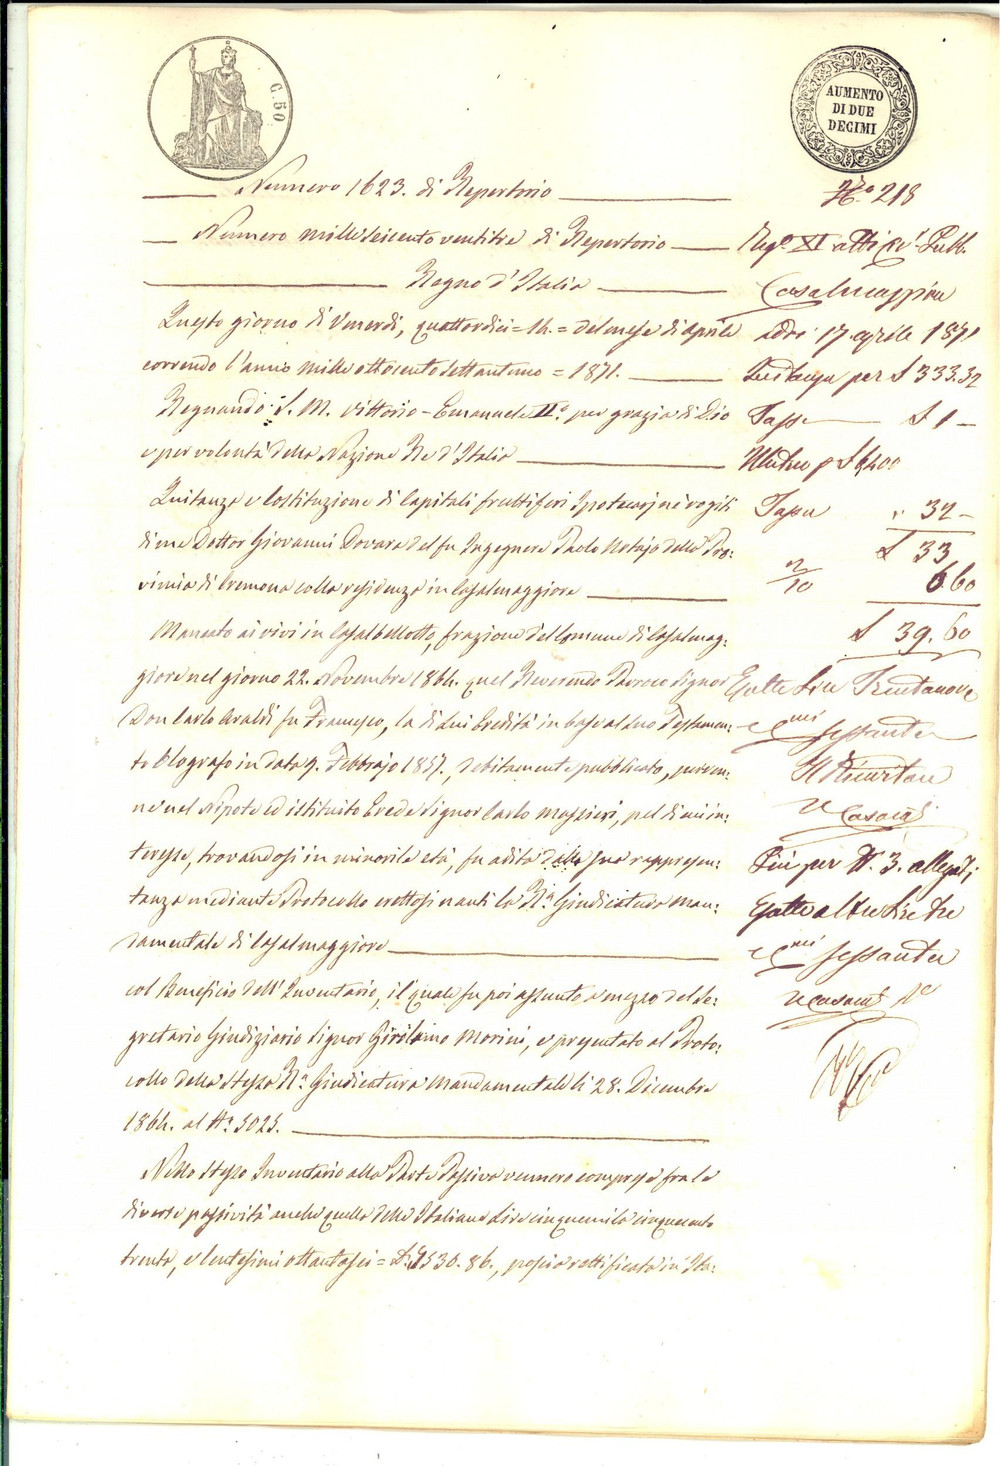 C. 50
AUMENTO
DI DUE
DECIMI
Numero 1623. di Repertorio
Numero milleseicento ventitre di Repertorio
Regno d'Italia
Questo giorno di Venerdi, quattordici = 14. = del mese di Aprile
correndo l'anno mille ottocento settantuno = 1871.
Regnando S. M. Vittorio-Emanuele II.° per grazia di Dio
e per volontà della Nazione Re d'Italia
Quitanza e Costituzione di Capitali fruttiferi Ipotecarj nei rogiti
di me Dottor Giovanni Dovara del fu Ingegnere Paolo Notajo della Pro:
vincia di Cremona colla residenza in Casalmaggiore
Mancato ai vivi in Casalbellotto, frazione del Comune di Casalmag:
giore nel giorno 22. Novembre 1864. quel Reverendo Parroco Signor
Don Carlo Araldi fu Francesco, la di lui Eredità in base al suo Testamen:
to Olografo in data 9. Febbrajo 1857., debitamente pubblicato, perven:
ne nel Nipote ed istituito Erede Signor Carlo Massieri, pel di cui in:
teresse, trovandosi in minorile età, fu adita dalla sua rappresen:
tanza mediante Protocollo erettosi nanti la R.a Giudicatura Man:
damentale di Casalmaggiore
col Beneficio dell'Inventario, il quale fu poi assunto a mezzo del Se:
gretario Giudiziario Signor Girolamo Morini, e presentato al Proto:
collo della stessa R.a Giudicatura Mandamentale li 28. Dicembre
1864. al N.° 5025.
Nello stesso Inventario alla Parte Passiva vennero comprese fra le
diverse passività anche quella delle Italiane Lire cinquemila cinquecento
trenta, e Centesimi ottantasei = £. 5530. 86., poscia rettificata in Ita:
N.° 218
Reg.° XI atti Pubb.
Casalmaggiore
addi 17. aprile 1871
Quitanza per £ 333.32
Tassa £ 1 -
Mutuo p £ 6400
Tassa " 32 -
£ 33
2/10 6.60
£ 39.60
Esatte Lire Trentanove
e C.mi sessanta
Il Ricevitore
Più per N. 3. allegati
Esatte altre Lire tre
e C.mi sessanta